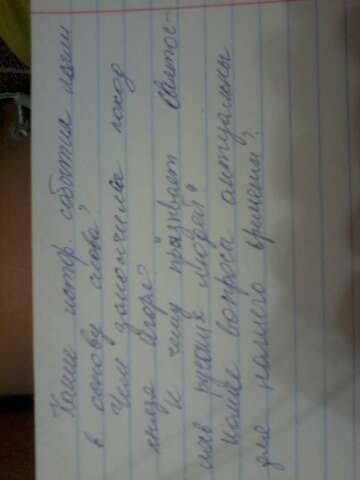 Какие истор. события легли
в основу слова?
Чем закончился поход
князя Игоря?
К чему призывает Святос-
лав русских людей?
Какие вопросы актуальны
для нашего времени?